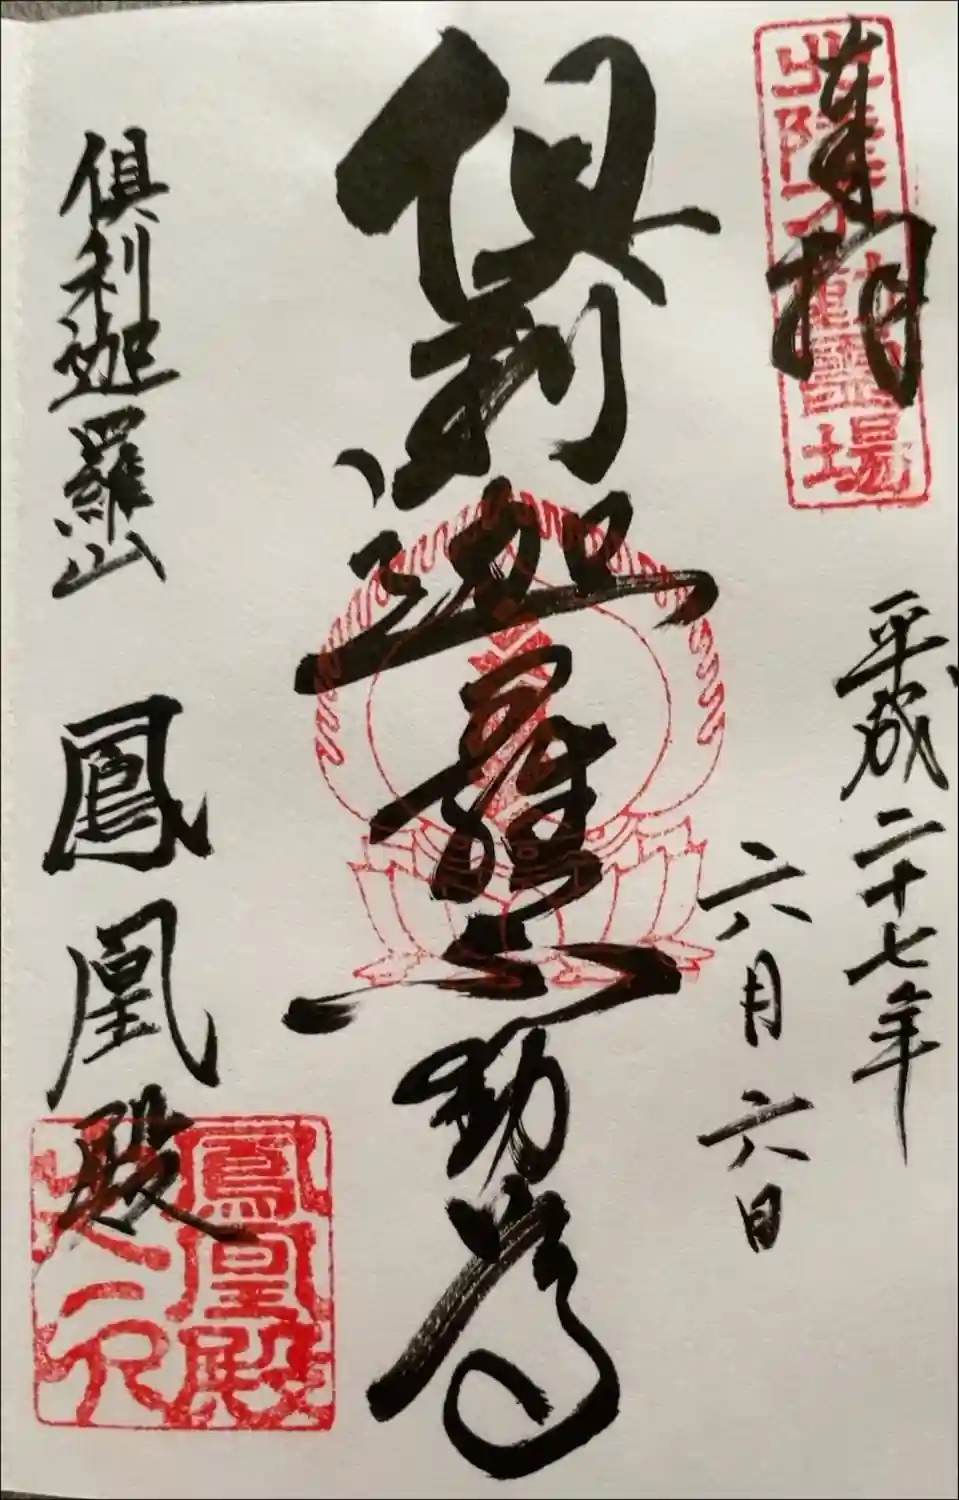 奉拝
北陸不動霊場
平成二十七年
六月六日
倶利迦羅不動尊
倶利迦羅山 鳳凰殿
鳳凰殿之印